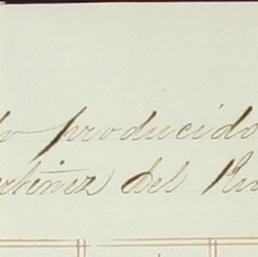 lo producido
rtinez del Rio